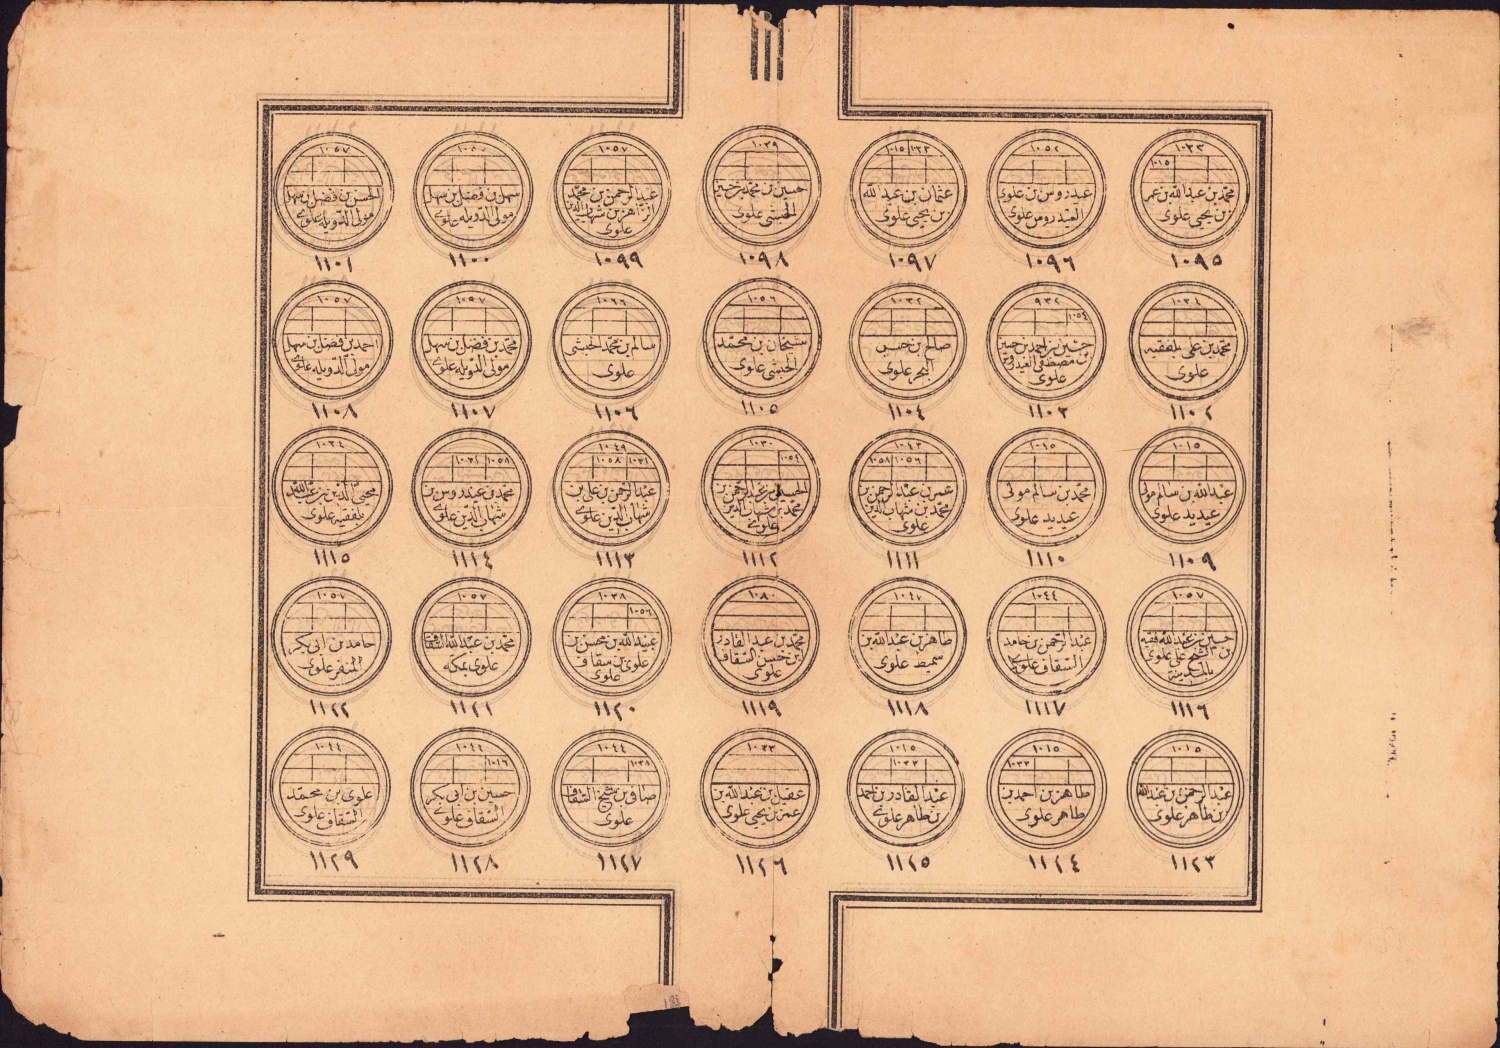 ١٠٣٣
١٠١٥
محمد بن عبد الله بن عمر
بن يحيى علوي
١٠٩٥
١٠٥٢
عيدروس بن علوي
العيدروس علوي
١٠٩٦
١٠٣٣ ١٠١٥
عثمان بن عبد الله
بن يحيى علوي
١٠٩٧
١٠٣٩
حسين بن محمد بن حسين
الحبشي علوي
١٠٩٨
١٠٥٧
عبد الرحمن بن محمد
شهاب الدين
علوي
١٠٩٩
سهل بن فضل بن سهل
مولى الدويله علوي
١١٠٠
١٠٥٧
الحسن بن فضل بن سهل
مولى الدويله علوي
١١٠١
١٠٣٤
محمد بن علي بلفقيه
علوي
١١٠٢
٩٣٢
١٠٥٤
حسين بن احمد بن حسين
بن مصطفى العيدروس
علوي
١١٠٣
١٠٣٢
صالح بن حسين
البحر علوي
١١٠٤
١٠٥٦
شيخان بن محمد
الحبشي علوي
١١٠٥
سالم بن محمد الحبشي
علوي
١١٠٦
١٠٥٧
محمد بن فضل بن سهل
مولى الدويله علوي
١١٠٧
١٠٥٧
احمد بن فضل بن سهل
مولى الدويله علوي
١١٠٨
١٠١٥
عبد الله بن سالم مولى
عيديد علوي
١١٠٩
١٠١٥
محمد بن سالم مولى
عيديد علوي
١١١٠
١٠٥٨ ١٠٥٦
عمر بن عبد الرحمن بن
محمد بن شهاب الدين
علوي
١١١١
١٠٣٠
١٠٥٤
عبد الرحمن بن
محمد بن شهاب الدين
علوي
١١١٢
١٠٤٩
١٠٥٨ ١٠٣٤
عبد الرحمن بن علي بن
شهاب الدين علوي
١١١٣
١٠٣٤ ١٠٥٨
محمد بن عيدروس بن
شهاب الدين علوي
١١١٤
١٠٣٤
محيي الدين بن عبد الله
بلفقيه علوي
١١١٥
١٠٥٧
حسين بن عبد الله فقيه
بن الشيخ علي علوي
بالمدينة
١١١٦
١٠٤٤
عبد الرحمن بن حامد
السقاف علوي
١١١٧
١٠٤٧
طاهر بن عبد الله بن
سميط علوي
١١١٨
١٠٨٠
محمد بن عبد القادر
بن حسن السقاف
علوي
١١١٩
١٠٣٨
١٠٥٦
عبد الله بن محسن بن
علوي بن سقاف
علوي
١١٢٠
١٠٥٧
محمد بن عبد الله السقاف
علوي بمكه
١١٢١
١٠٥٧
حامد بن ابي بكر
المنفر علوي
١١٢٢
١٠١٥
عبد الرحمن بن عبد الله
بن طاهر علوي
١١٢٣
١٠١٥
١٠٣٣
طاهر بن احمد بن
طاهر علوي
١١٢٤
١٠١٥
١٠٣٣
عبد القادر بن احمد
بن طاهر علوي
١١٢٥
١٠٣٣
عقيل بن عبد الله بن
عمر بن يحيى علوي
١١٢٦
١٠٤٤
١٠٣٨
صافي بن شيخ السقاف
علوي
١١٢٧
١٠٤٤
١٠١٦
حسين بن ابي بكر
السقاف علوي
١١٢٨
١٠٤٤
علوي بن محمد
السقاف علوي
١١٢٩